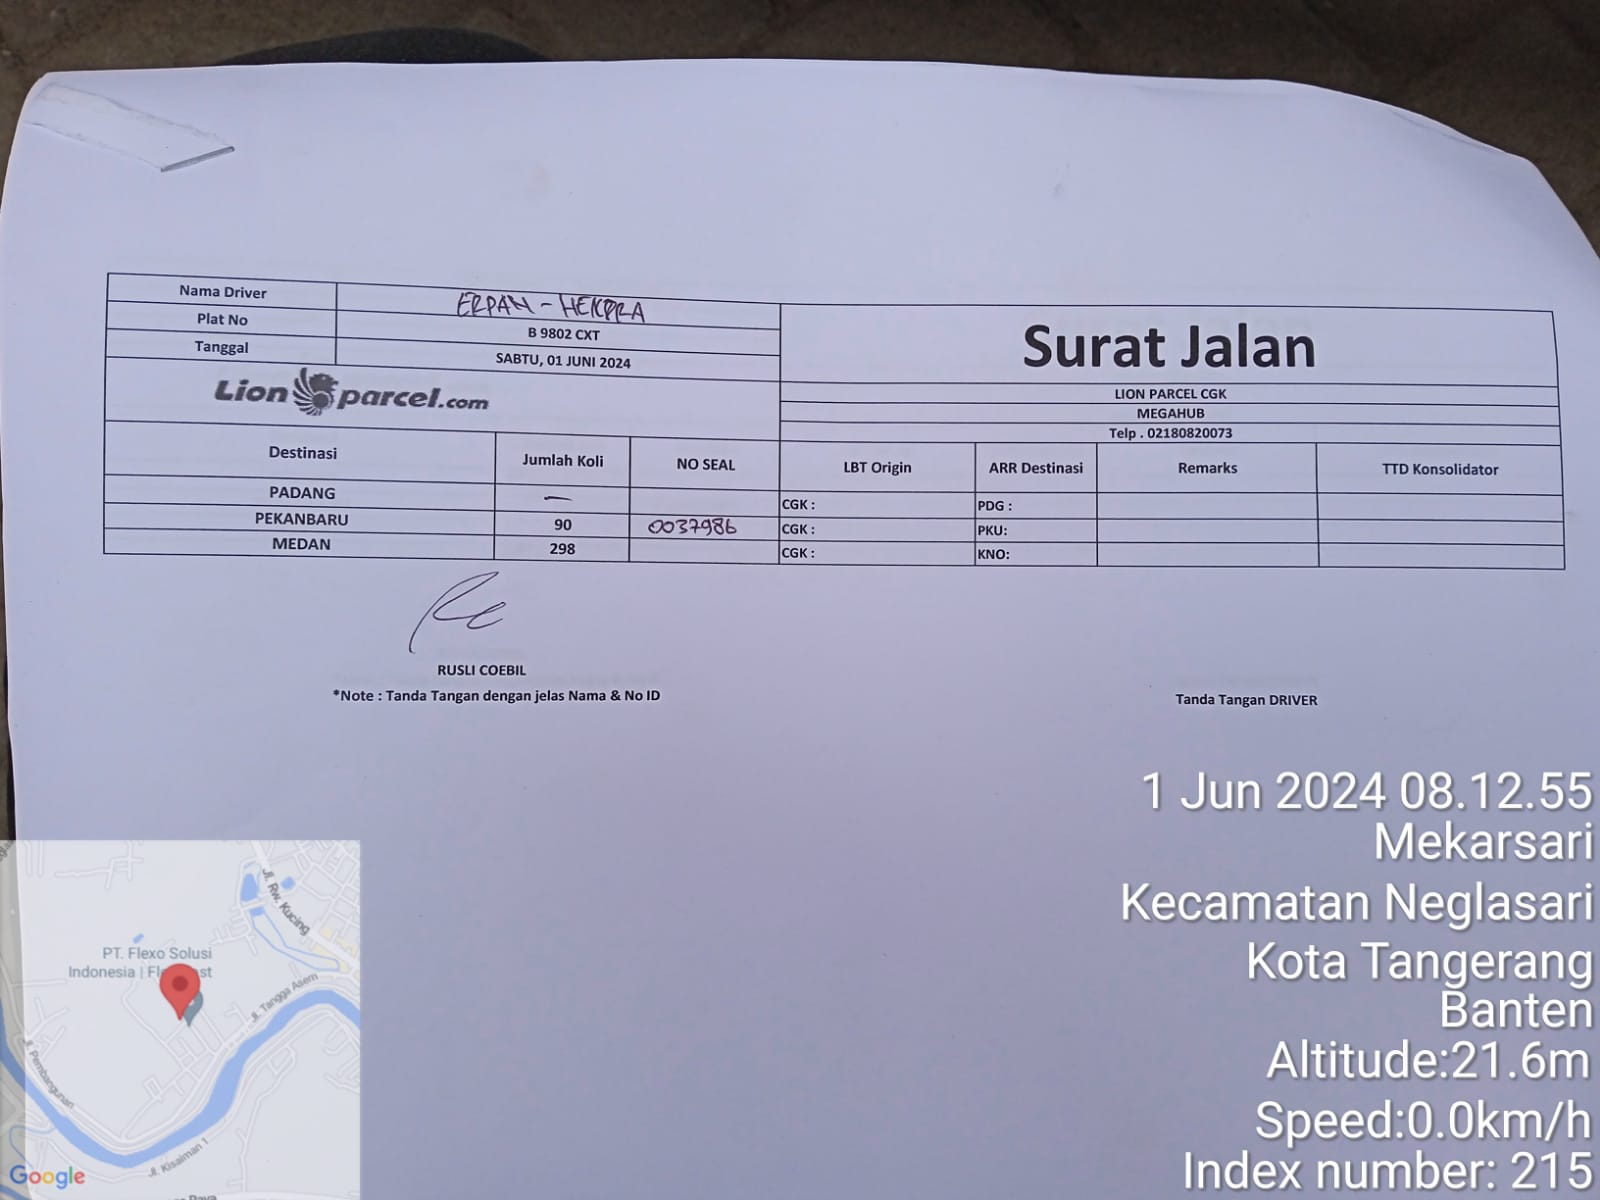 Nama Driver ERPAN - HENDRA
Plat No B 9802 CXT
Tanggal SABTU, 01 JUNI 2024
Surat Jalan
Lion parcel.com
LION PARCEL CGK
MEGAHUB
Telp . 02180820073
Destinasi Jumlah Koli NO SEAL LBT Origin ARR Destinasi Remarks TTD Konsolidator
PADANG — CGK : PDG :
PEKANBARU 90 0037986 CGK : PKU:
MEDAN 298 CGK : KNO:
RUSLI COEBIL
*Note : Tanda Tangan dengan jelas Nama & No ID
Tanda Tangan DRIVER
1 Jun 2024 08.12.55
Mekarsari
Kecamatan Neglasari
Kota Tangerang
Banten
Altitude:21.6m
Speed:0.0km/h
Index number: 215
Jl. Rw. Kucing
PT. Flexo Solusi
Indonesia |
Jl. Tangga Asem
Jl. Pembangunan
Jl. Kisaiman 1
Google